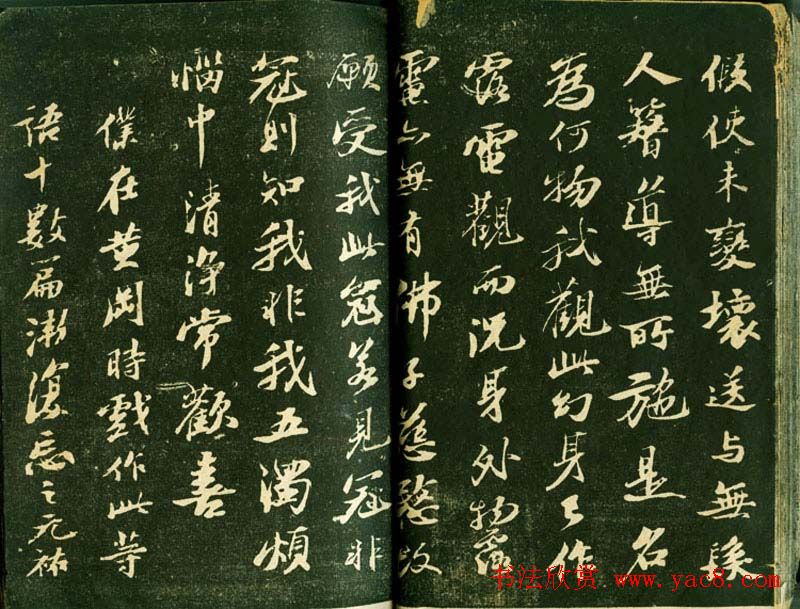 假使未變壞送與無髮
人簪導無所施是名
為何物我觀此幻身已作
露電觀而況身外物露
電亦無有佛子慈愍故
願受我此冠若見冠非
冠則知我非我五濁煩
惱中清淨常歡喜
僕在黃岡時戲作此等
語十數篇漸復忘之元祐
书法欣赏 www.yac8.com